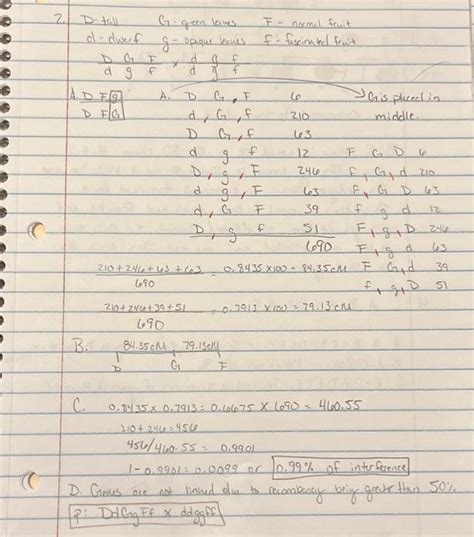 2. D-tall   G-green leaves   F - normal fruit
d-dwarf   g-opaque leaves   f-fascinated fruit
D G F × d g f
d g f   d g f
A. D F g   A. D G F   6   → G is placed in
D F G   d, G, f   210   middle.
D G, f   63
d g f   12   F G D 6
D, g, F   246   f, G, d 210
d g, F   63   f, G D 63
d, G F   39   f g d 12
D, g f   51   F, g, D 246
690   F, g d 63
210+246+63+63 = 0.8435 x100 = 84.35cM   F G, d 39
690   f, g, D 51
210+246+39+51 = 0.7913 x100 = 79.13cM
690
B. 84.35cM 79.13cM
D G F
C. 0.8435 x 0.7913 = 0.6675 x 690 = 460.55
210+246=456
456/460.55 = 0.9901
1-0.9901 = 0.0099 or 0.99% of interference
D. Genes are not linked due to recombancy being greater than 50%.
P: DdGgFf x ddggff